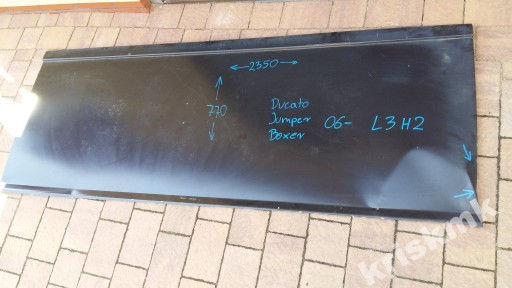 2350
770
Ducato
Jumper 06- L3H2
Boxer
kriskmk